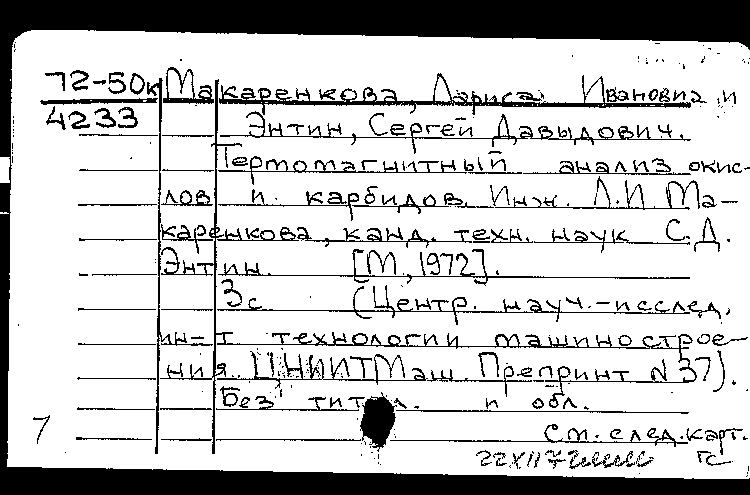 72-50к Макаренкова, Лариса Ивановна и
4233 Энтин, Сергей Давыдович.
Термомагнитный анализ окис-
лов и карбидов. Инж. Л.И. Ма-
каренкова, канд. техн. наук С.Д.
Энтин. [М., 1972].
3с (Центр. науч.-исслед.
ин-т технологии машинострое-
ния ЦНИИТМаш Препринт N 37).
Без титл. и обл.
7 См. след. карт.
22 XII 72 ГС